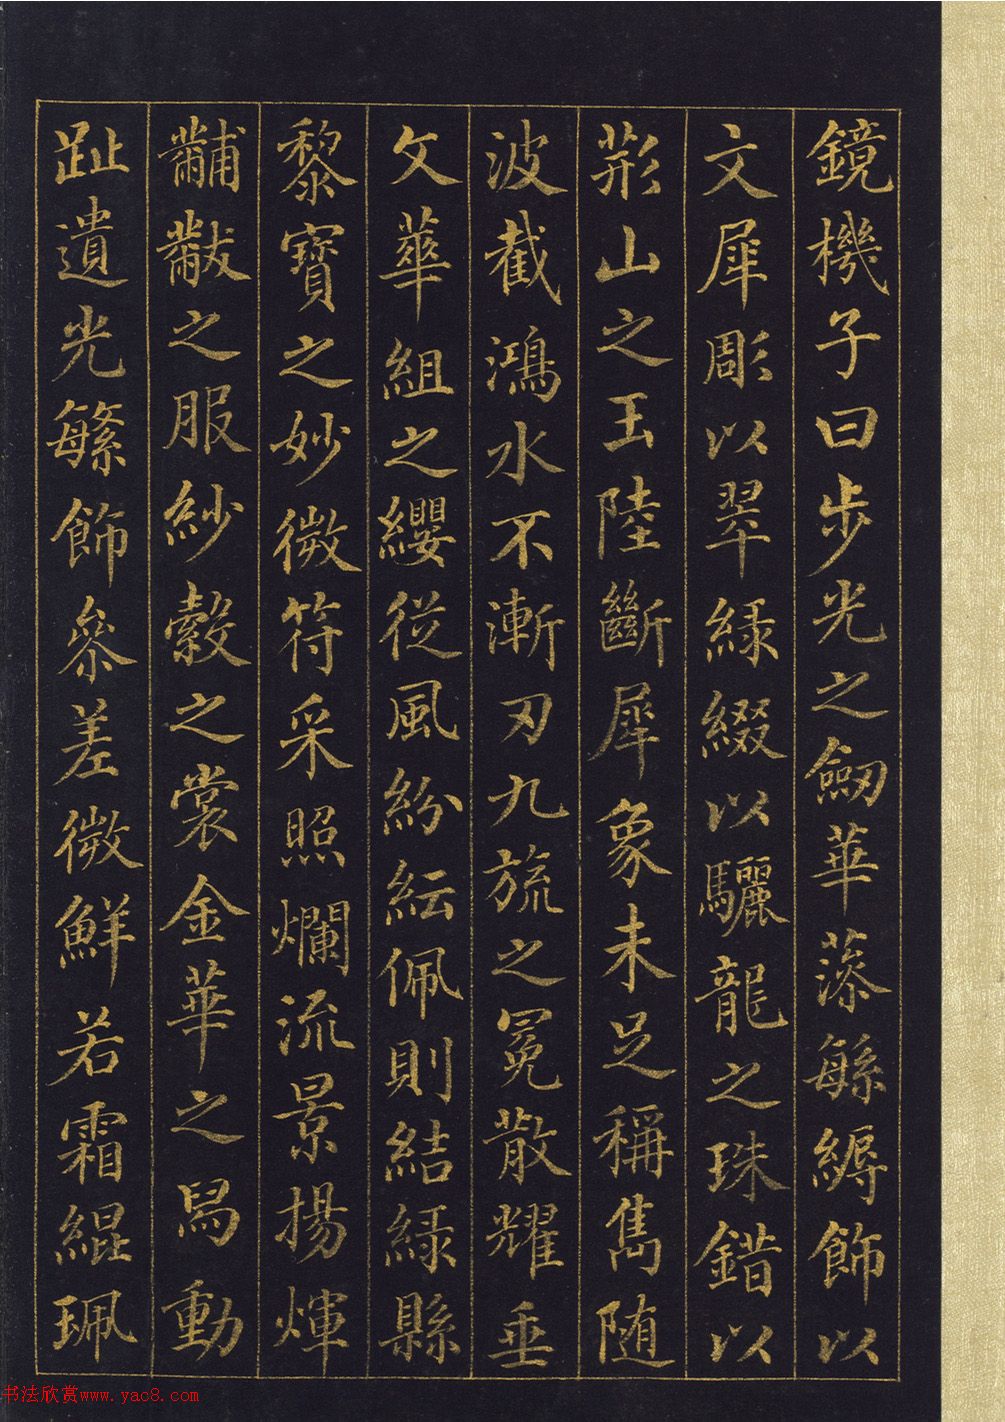 鏡機子曰步光之劒華藻緐縟飾以
文犀彫以翠緑綴以驪龍之珠錯以
荆山之玉陸斷犀象未足稱雋随
波截鴻水不漸刃九旒之冕散耀垂
文華組之纓從風紛紜佩則結緑縣
黎寶之妙微符采照爛流景揚煇
黼黻之服紗縠之裳金華之舄動
趾遺光繁飾參差微鮮若霜緄珮
书法欣赏www.yac8.com